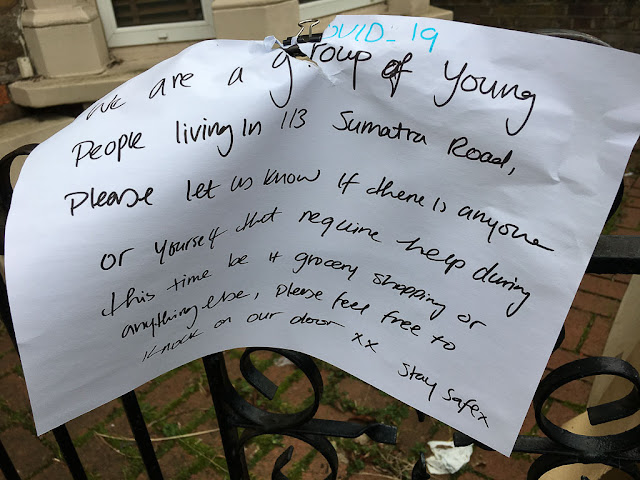 OVID_19
We are a group of Young
People living In 113 Sumatra Road,
Please let us know If there is anyone
or yourself that require help during
this time be it grocery shopping or
anything else, Please feel free to
Knock on our door xx
Stay Safe x